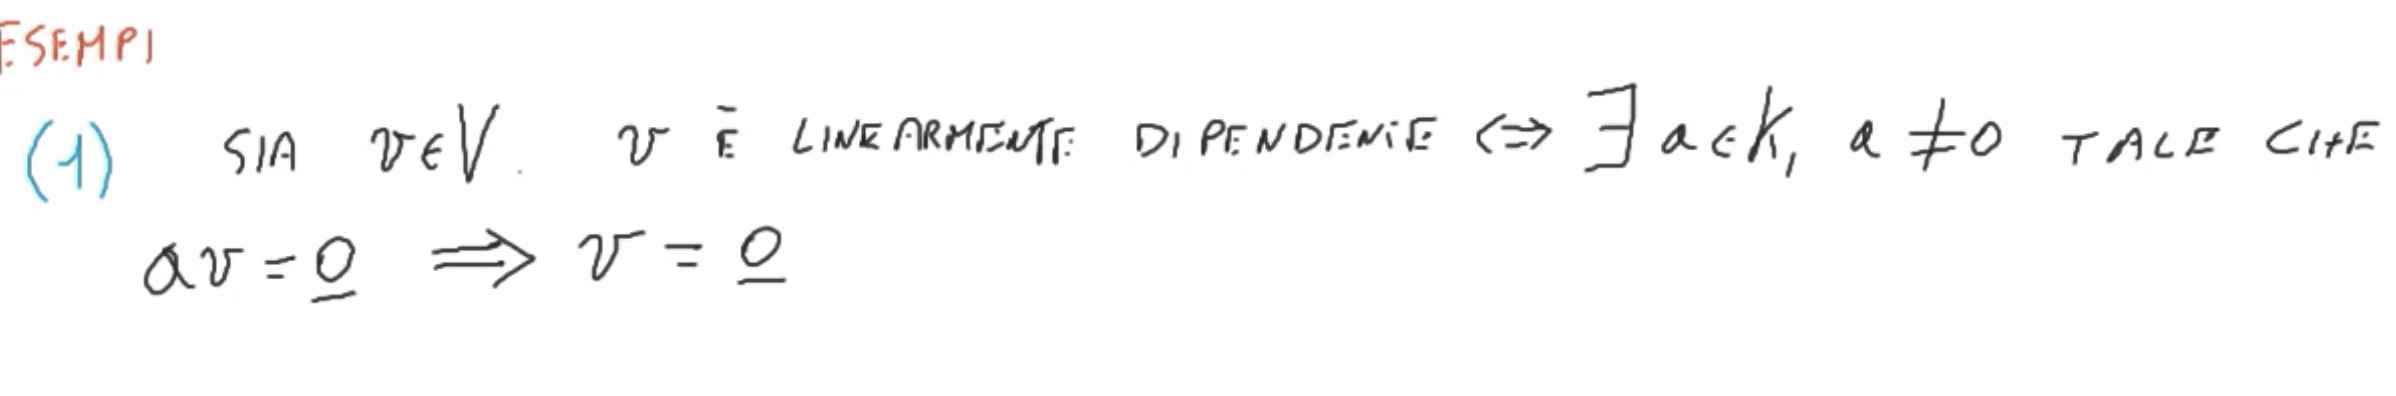 ESEMPI
(1) SIA v∈V. v È LINEARMENTE DIPENDENTE <=> ∃ a∈K, a ≠ 0 TALE CHE
av = 0 => v = 0